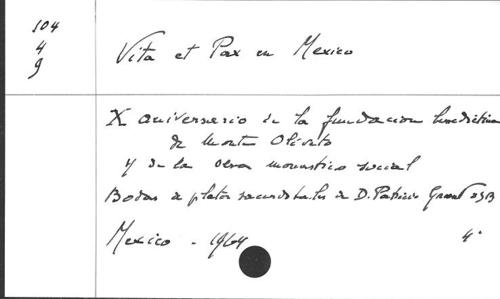 104
4
9
Vita et Pax en Mexico
X aniversario de la fundacion benedictina
de Monte Oliveto
y de la obra monastico social
Bodas de plata sacerdotales de D. Patricio OSB
Mexico - 1964 4°